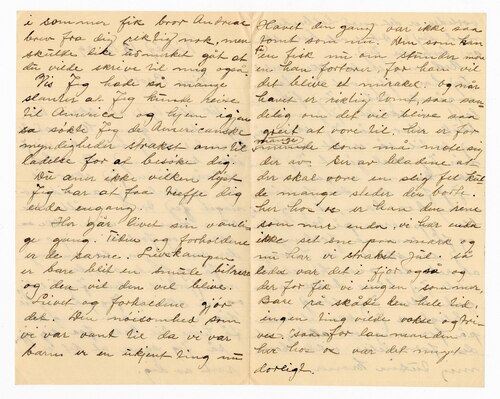 i sommer fik bror Andreas
brev fra dig, riktig nok, men
skulde like udmerket gåt at
du vilde skrive til mig også.
Vis Jeg hade så mange
slanter at Jeg kunde reise
til Amerika og hjem igjen
så søkte Jeg de Amerikanske
myndigheder straks om til-
ladelse for at besøke dig.
Du aner ikke vilken lyst
Jeg har at få treffe dig
enda engang.
Her går livet sin vanli-
ge gang. Tiden og forholdene
er de samme. Livskampen
er bare blit en smule bitrere
og der vil den vel blive.
Livet og forholdene gjør
det. Den nøisomhed som
vi var vant til da vi var
barn er en ukjent ting nu
Havet den gang var ikke så
tomt som nu. Den som kan
en fisk nu om stunder må
en han fortorer, for han vil
det blive et mirakel. og når
havet er riktig tomt, så
delig om det vil blive så
greit at være til. her er for
mange
som må møte sig
der av. Ser av bladene at
der skal være en slig fet kul-
de mange steder der borte.
her hos os er kun den rene
sommer enda. vi har enda
ikke set sne på mark og
nu har vi straks Jul. så
ledes var det i fjor også og
der for fik vi ingen sommer
Bare rå skådde den hele tid
ingen ting vilde vokse og tri-
ves. som for lan manden
her hos os var det meget
dårligt.